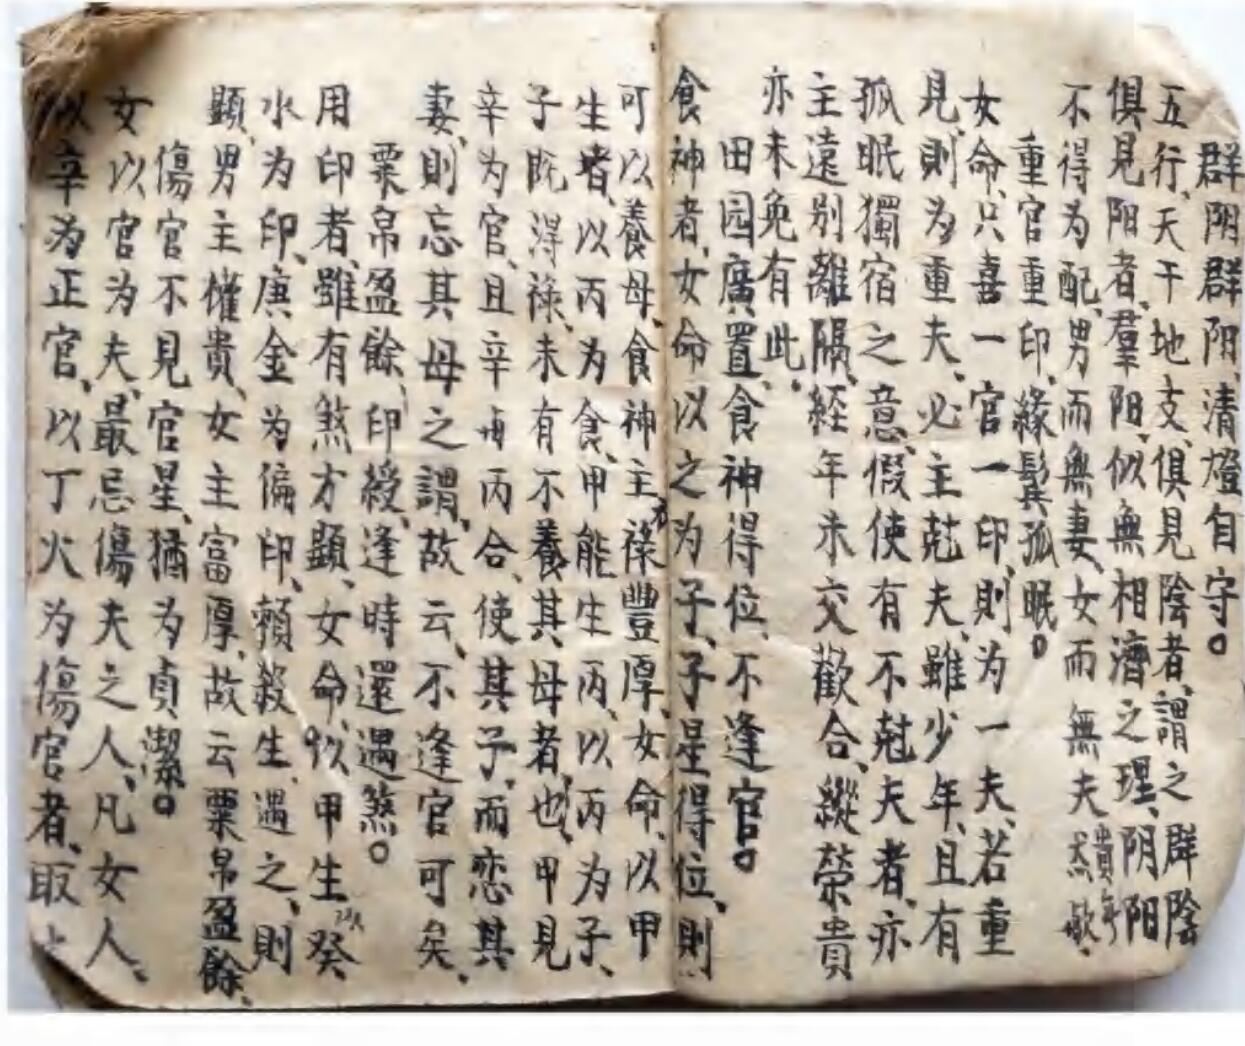 群阴群阳、清燈自守。
五行、天干地支、俱見陰者、謂之群陰
俱見阳者、羣阳、似無相濟之理、阴阳
不得为配、男而無妻、女而無夫
重官重印、緣鬂孤眠。
女命、只喜一官一印、則为一夫、若重
見、則为重夫、必主尅夫、雖少年、且有
孤眠獨宿之意、假使有不尅夫者、亦
主遠別離隔、経年未交歡合、縱榮貴
亦未免有此、
田园廣置食神得位、不逢官。
食神者、女命以之为子、子星得位、則
可以養母、食神主衣祿豐厚、女命、以甲
生者、以丙为食、甲能生丙、以丙为子、
子既得祿、未有不養其母者、也、甲見
辛为官、且辛丙合、使其子、而恋其
妻、則忘其母之謂、故云、不逢官可矣、
粟帛盈餘、印綬、逢時還遇煞。
用印者、雖有煞才顕、女命、以甲生以癸、
水为印、庚金为偏印、賴殺生、遇之、則
顕、男主權貴、女主富厚、故云粟帛盈餘、
傷官不見官星、猶为貞潔。
女以官为夫、最忌傷夫之人、凡女人、
以辛为正官、以丁火为傷官者、取